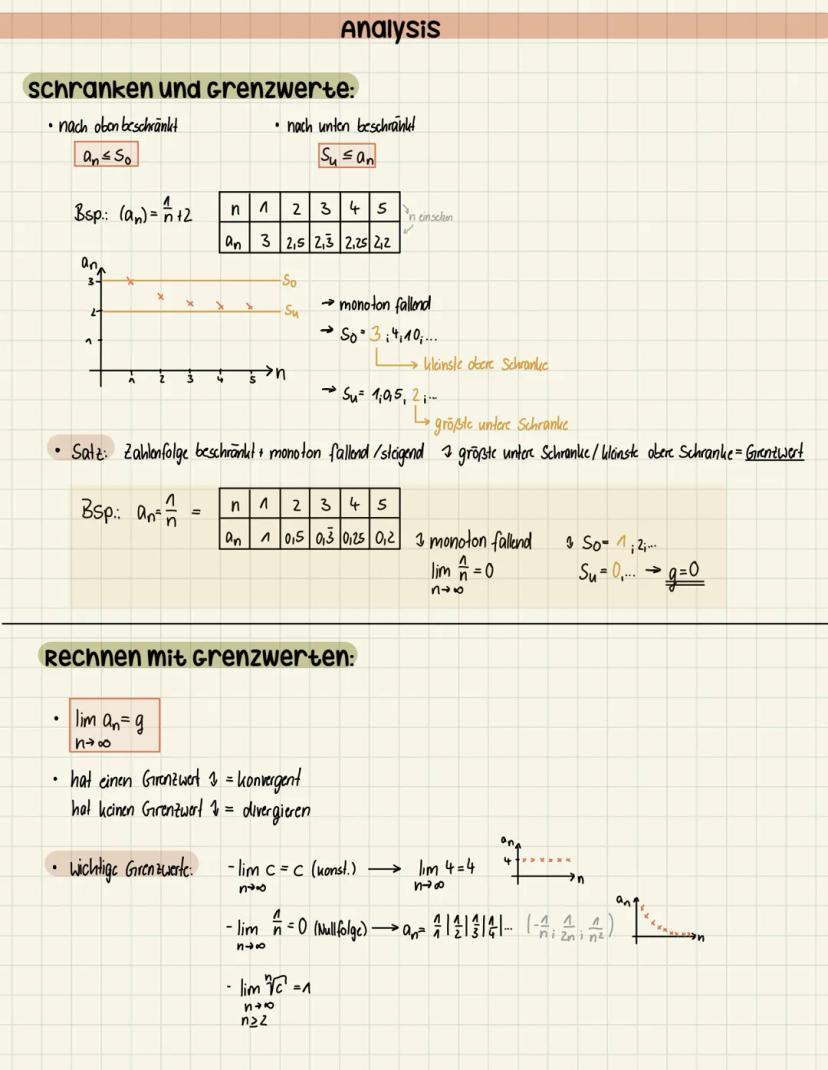 Analysis
Schranken und Grenzwerte:
• nach oben beschränkt • nach unten beschränkt
aₙ ≤ S₀ Sᵤ ≤ aₙ
Bsp.: (aₙ) = 1/n + 2
n 1 2 3 4 5
aₙ 3 2,5 2,3̄ 2,25 2,2
n einsetzen
aₙ
3 S₀
2 Sᵤ
1
1 2 3 4 5 n
→ monoton fallend
→ S₀ = 3; 4; 10; ...
→ kleinste obere Schranke
→ Sᵤ = 1; 0,5, 2; ...
→ größte untere Schranke
• Satz: Zahlenfolge beschränkt + monoton fallend / steigend ↯ größte untere Schranke / kleinste obere Schranke = Grenzwert
Bsp.: aₙ = 1/n =
n 1 2 3 4 5
aₙ 1 0,5 0,3̄ 0,25 0,2
↯ monoton fallend ↯ S₀ = 1; 2; ...
lim 1/n = 0 Sᵤ = 0, ... → g = 0
n→∞
Rechnen mit Grenzwerten:
• lim aₙ = g
n→∞
• hat einen Grenzwert ↯ = konvergent
hat keinen Grenzwert ↯ = divergieren
• wichtige Grenzwerte: - lim c = c (konst.) → lim 4 = 4
n→∞ n→∞
aₙ
4
n
- lim 1/n = 0 (Nullfolge) → aₙ = 1/1 | 1/2 | 1/3 | 1/4 | ... (-1/n; 1/2n; 1/n²)
n→∞
aₙ
n
- lim ⁿ√c = 1
n→∞
n≥2